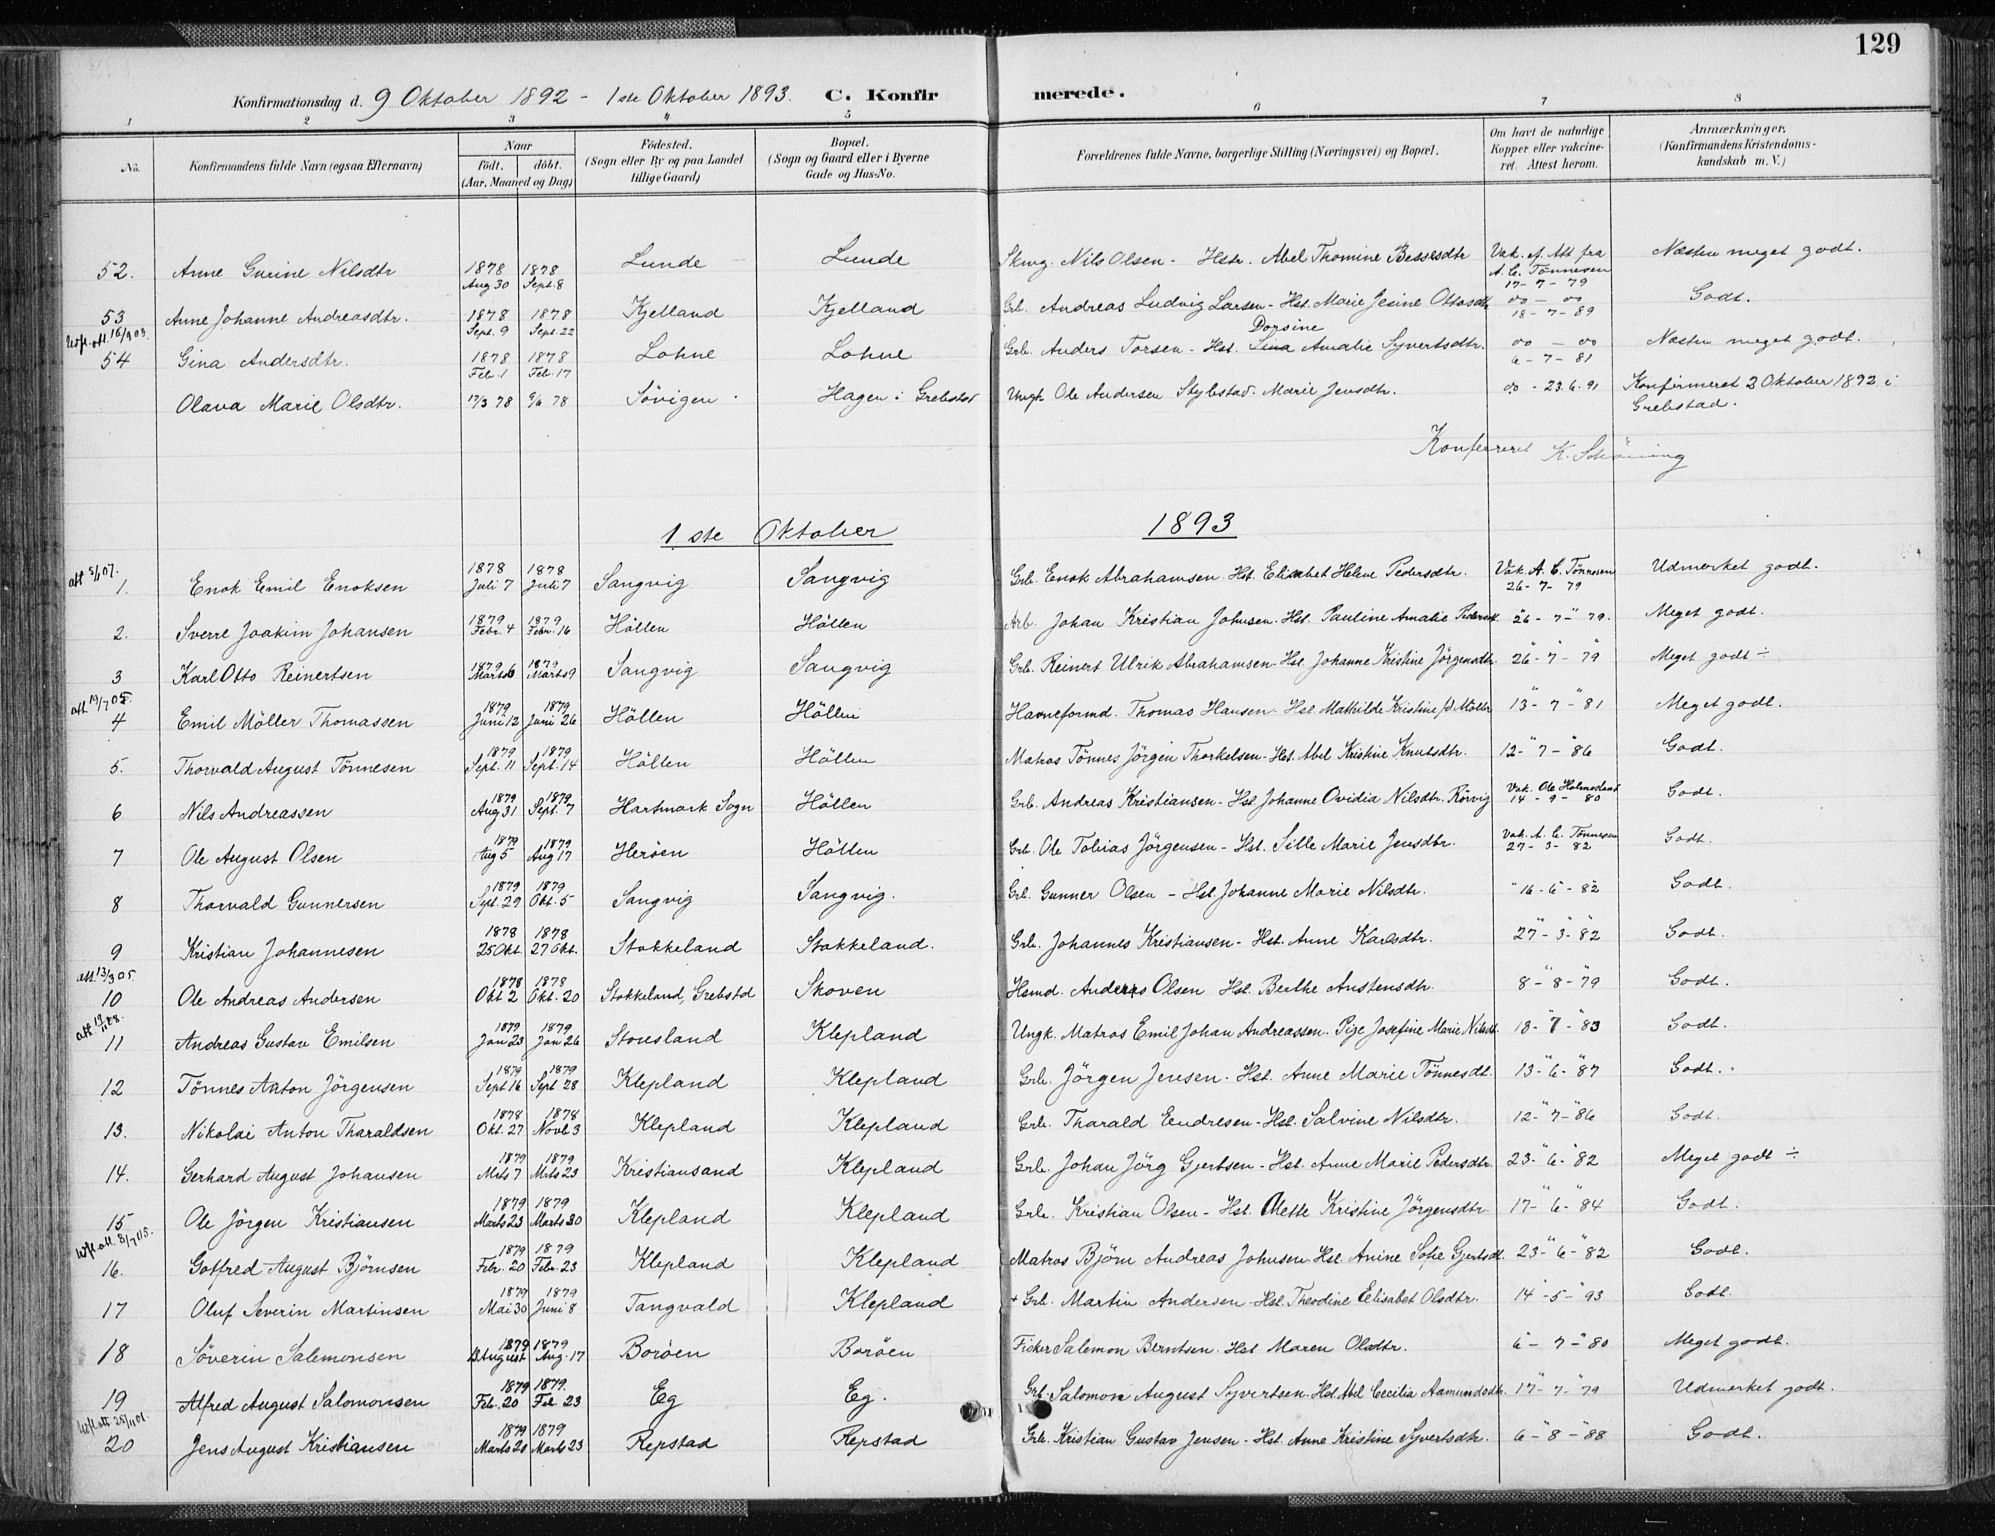 129
Konfirmationsdag d. 9 Oktober 1892 - 1ste Oktober 1893. C. Konfirmerede.
1 2 3 4 5 6 7 8
No. Konfirmandens fulde Navn (ogsaa Efternavn) Naar Födt. döbt. (Aar, Maaned og Dag) Födested. (Sogn eller By og paa Landet tillige Gaard) Bopæl. (Sogn og Gaard eller i Byerne Gade og Hus-No. Forældrenes fulde Navne, borgerlige Stilling (Næringsvei) og Bopæl. Om havt de naturlige Kopper eller vakcineret. Attest herom. Anmærkninger. (Konfirmandens Kristendomskundskab m. V.)
52. Anne Gurine Nilsdtr 1878 Aug 30 1878 Sept. 8 Lunde Lunde Skmg. Nils Olsen - Hstr. Abel Thomine Besselsdtr Vak. ef. Att fra A. C. Tönnesen 17-7-79 Næsten meget godt.
53 Anne Johanne Andreasdtr. 1878 Sept. 9 1878 Sept. 22 Kjelland Kjelland Grb. Andreas Ludvig Larsen - Hst. Marie Jesine Ottosdtr oo - oo 18-7-89 Godt.
54 Gina Andersdtr. 1878 Feb. 1 1878 Feb. 17 Lohne Lohne Grb. Anders Torsen - Hst. Dorsine Amalie Syvertsdtr. oo - oo 6-7-81 Næsten meget godt.
Olava Marie Olsdtr. 17/3 78 9/6 78 Sövigen Hagen i Grebstad Ungk Ole Andersen Stylestad. Marie Jensdtr. oo - 23.6.91 Konfirmeret 2 Oktober 1892 i Grebstad.
Konfereret K. Schöning
1ste Oktober 1893
1. Enok Emil Enoksen 1878 Juli 7 1878 Juli 7 Sangvig Sangvig Grb. Enok Abrahamsen. Hst. Elisabet Helene Pedersdtr. Vak. A. C. Tönnesen 26-7-79 Udmerket godt.
2. Sverre Joakim Johansen 1879 Febr. 4 1879 Febr. 16 Höllen Höllen Arb. Johan Kristian Johnsen. Hst. Pauline Amalie Pedersdt. 26-7-79. Meget godt.
3 Karl Otto Reinertsen 1879 Marts 6 1879 Marts 9 Sangvig Sangvig Grb. Reinert Ulrik Abrahamsen. Hst. Johanne Kristine Jörgensdtr. 26-7-79 Meget godt ÷
att 19/7 05.
4 Emil Möller Thomassen 1879 Juni 12 1879 Juni 26 Höllen Höllen Havneformd. Thomas Hansen. Hst. Mathilde Kristine f/d Möller 13-7-81 Meget godt.
5. Thorvald August Tönnesen 1879 Sept. 11 1879 Sept. 14 Höllen Höllen Matros Tönnes Jörgen Thorkelsen - Hst. Abel Kristine Knutsdtr. 12-7-86 Godt.
6 Nils Andreassen 1879 Aug 31 1879 Sept. 7 Hartmark Sogn Höllen Grb. Andreas Kristiansen - Hst Johanne Ovidia Nilsdtr. Rörvig Vak. Ole Holmesland 14-9-80 Godt.
7 Ole August Olsen 1879 Aug 5 1879 Aug 17 Heröen Höllen Grb. Ole Tobias Jörgensen - Hst. Sille Marie Jensdtr. Vak. A. C. Tönnesen 27-3-82 Godt.
8 Thorvald Gunnersen 1879 Sept. 29 1879 Okt. 5 Sangvig Sangvig. Grb. Gunner Olsen - Hst. Johanne Marie Nilsdtr. 16-6-82 Godt.
9 Kristian Johannesen 1878 25 Okt. 1878 27 Okt. Stokkeland Stokkeland. Grb. Johannes Kristiansen - Hst. Anne Karlsdtr. 27-3-82 Godt.
att. 13/3 05.
10 Ole Andreas Andersen 1878 Okt 2 1878 Okt. 20 Stokkeland, Grebstd Skoven Hsmd. Anders Olsen Hst. Berthe Austensdtr. 8-8-79 Godt.
11 Andreas Gustav Emilsen 1879 Jan 23 1879 Jan 26 Stousland Klepland Ungk. Matros Emil Johan Andreassen. Pige Josefine Marie Nilsdt. 18-7-83 Godt.
12 Tönnes Anton Jörgensen 1879 Sept 16 1879 Sept 28 Klepland Klepland Grb. Jörgen Jensen. Hst. Anne Marie Tönnesdt. 13-6-87 Godt.
13. Nikolai Anton Tharaldsen 1878 Okt. 27 1878 Novb 3 Klepland Klepland Grb. Tharald Endresen - Hst. Salvine Nilsdtr. 12-7-86 Godt.
14. Gerhard August Johansen 1879 Mrts 7 1879 Mrts 23 Kristiansand Klepland Grb. Johan Jörg Gjertsen - Hst. Anne Marie Pedersdtr. 23-6-82 Meget godt ÷
15 Ole Jörgen Kristiansen 1879 Marts 23 1879 Marts 30 Klepland Klepland Grb. Kristian Olsen - Hst. Mette Kristine Jörgensdtr. 17-6-84 Godt.
16. Gotfred August Björnsen 1879 Febr. 20 1879 Febr. 23 Klepland Klepland Matros Björn Andreas Johnsen. Hst. Anine Sofie Gjertsdt. 23-6-82 Godt.
17 Oluf Severin Martinsen 1879 Mai 30 1879 Juni 8 Tangvald Klepland + Grb. Martin Andersen. Hst. Theodine Elisabet Olsdtr. 14-5-93 Godt
18 Söverin Salemonsen 1879 13 August 1879 Aug. 17 Boröen Boröen Fisker Salemon Berntsen. Hst Maren Olsdtr. 6-7-80 Meget godt.
19 Alfred August Salomonsen 1879 Feb. 20 1879. Feb 23 Eg Eg. Grb. Salomon August Syvertsen. Hst. Abel Cecilia Aamundsdtr. 17-7-79 Udmerket godt.
20 Jens August Kristiansen 1879 Marts 20 1879 Marts 23 Repstad Repstad Grb. Kristian Gustav Jensen - Hst. Anne Kristine Syvertsdtr. 6-8-88 Godt.